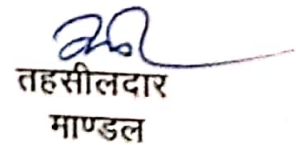 तहसीलदार
माण्डल